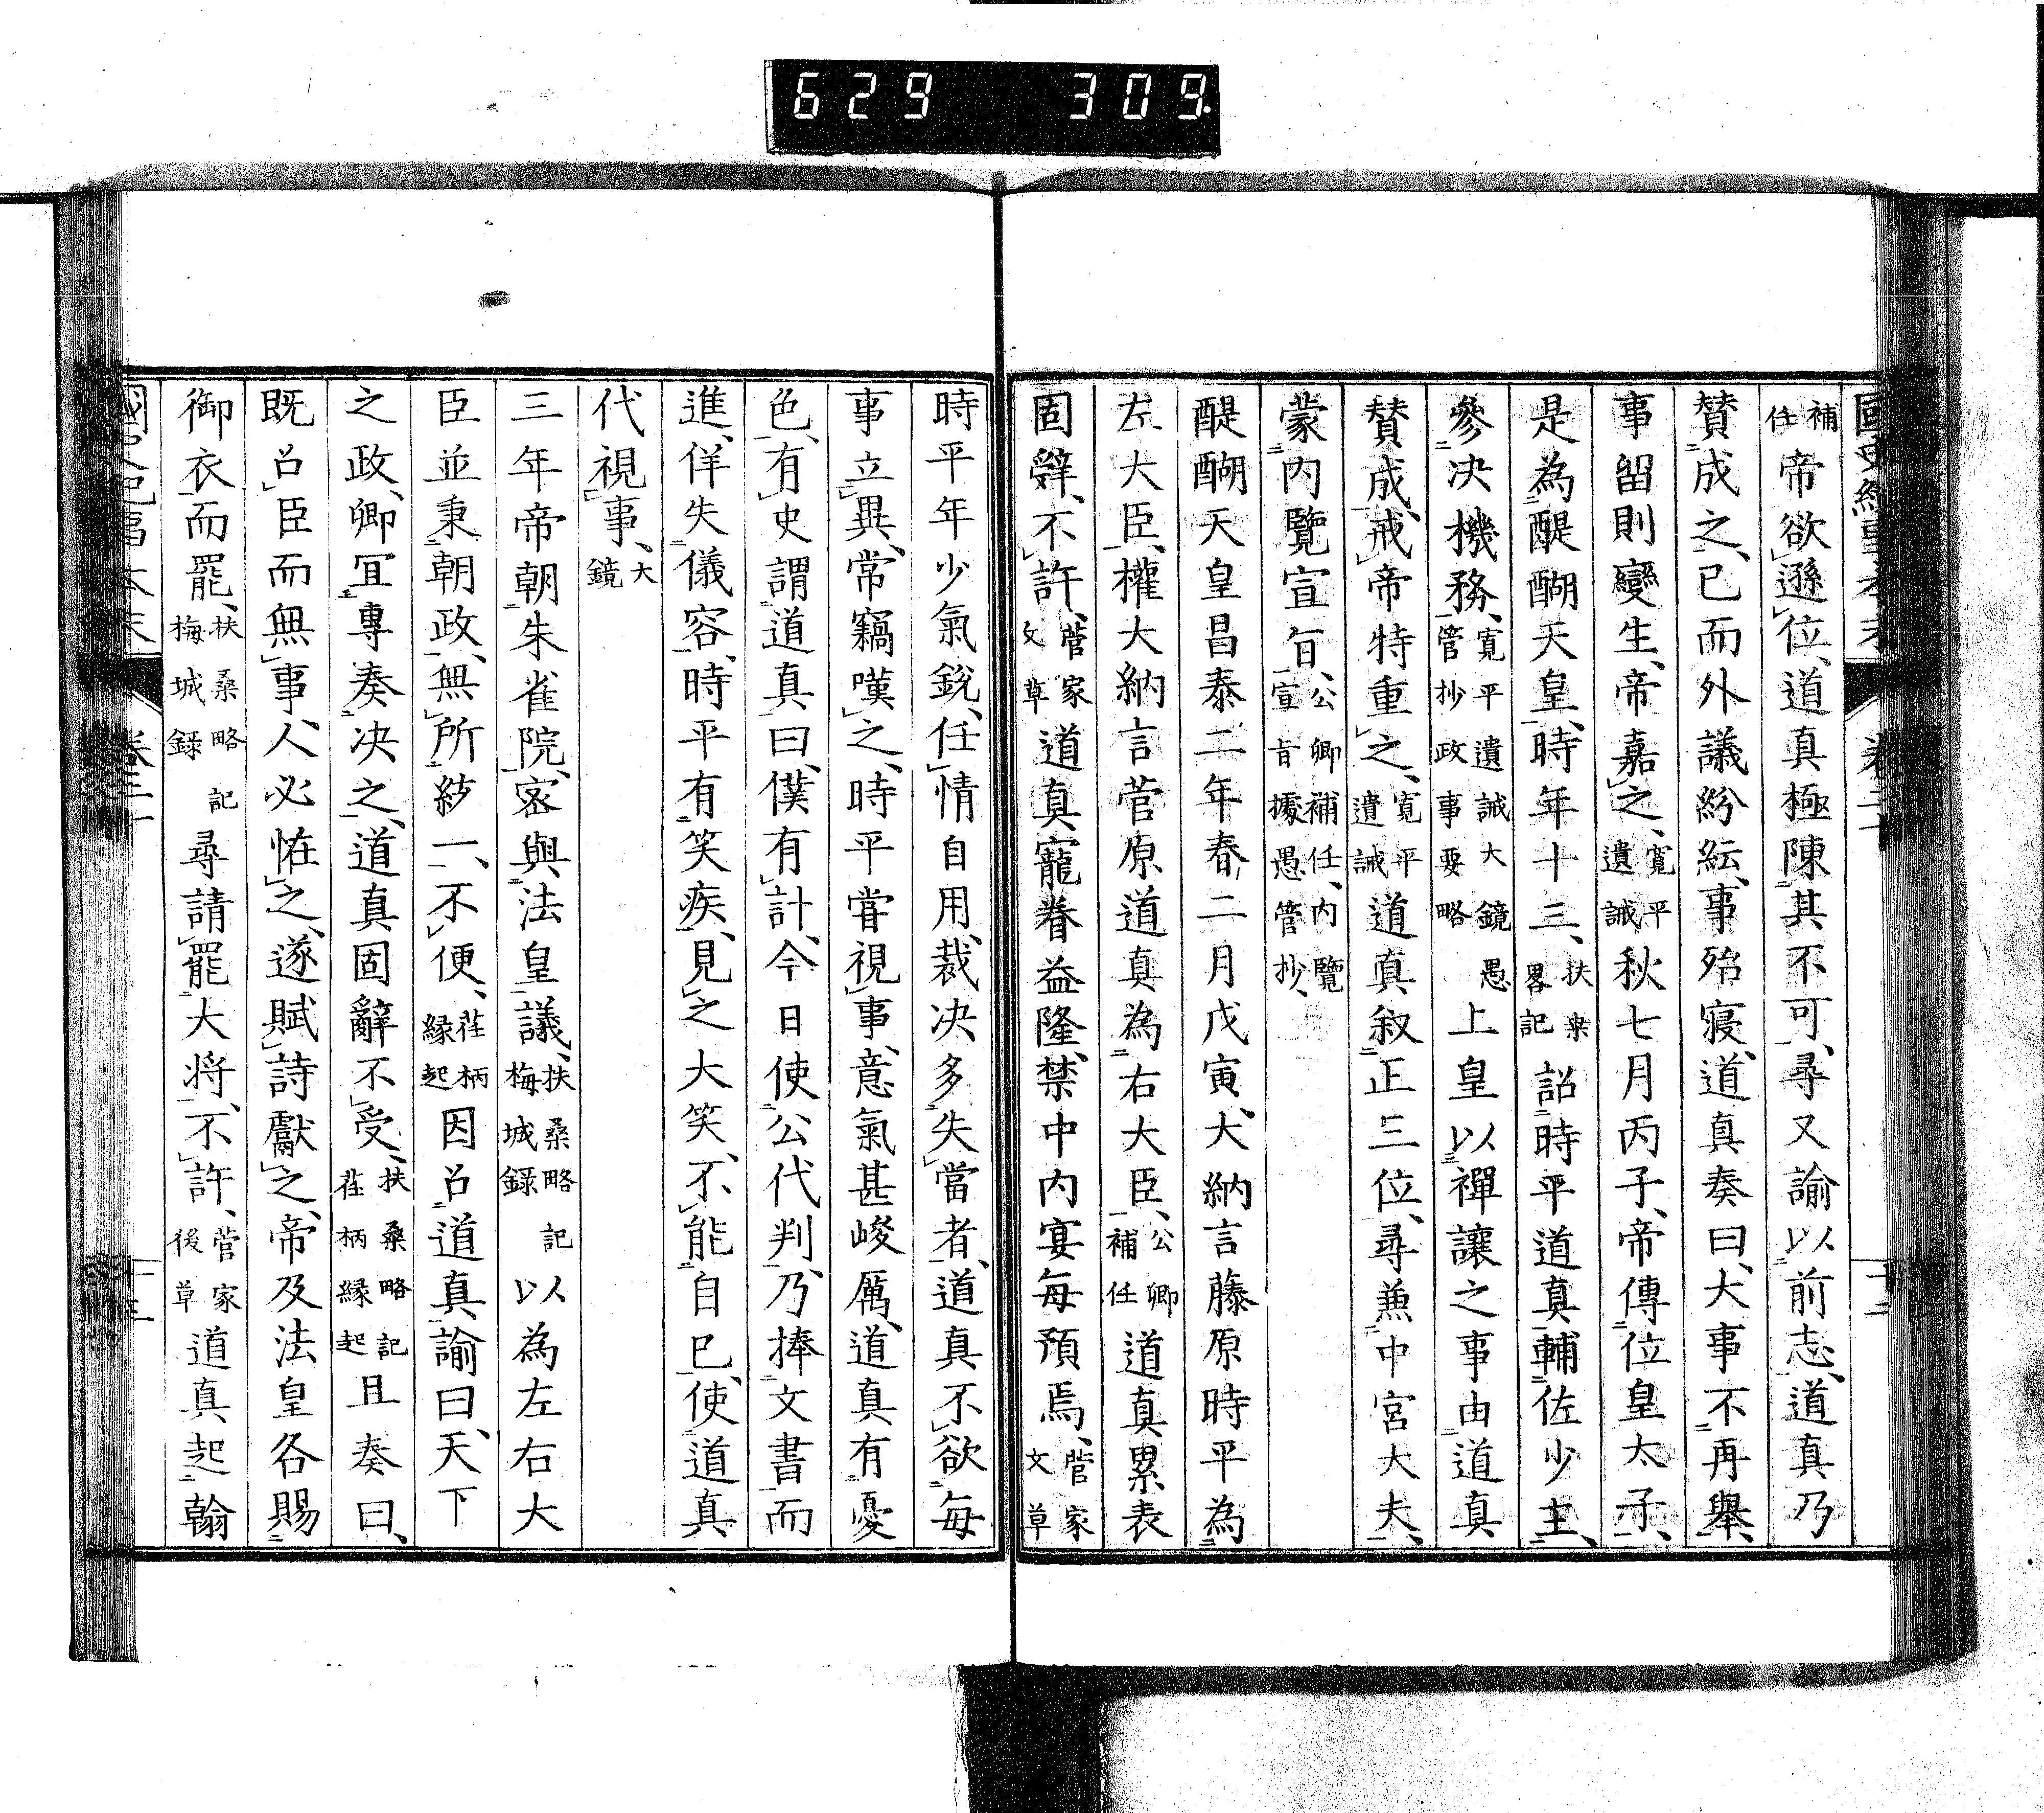 629 309.
國史紀事本末 卷二十 十二
補任帝欲遜位、道真極陳其不可、尋又諭以前志、道真乃
賛成之、已而外議紛紜、事殆寢、道真奏曰、大事不再舉、
事留則變生、帝嘉之、寬平遺誡秋七月丙子、帝傳位皇太子、
是為醍醐天皇、時年十三、扶桒畧記詔時平道真輔佐少主、
參决機務、寛平遺誡大鏡愚管抄政事要略上皇以禪讓之事由道真
賛成、戒帝特重之、寛平遺誡道真叙正三位、尋兼中宮大夫、
蒙内覽宣旨、公卿補任、内覽宣旨據愚管抄、
醍醐天皇昌泰二年春二月戊寅、大納言藤原時平為
左大臣、權大納言菅原道真為右大臣、公卿補任道真累表
固辤、不許、菅家文草道真寵眷益隆、禁中内宴每預焉、菅家文草
時平年少氣銳、任情自用、裁决多失當者、道真不欲每
事立異、常竊嘆之、時平甞視事、意氣甚峻厲、道真有憂
色、有史謂道真曰、僕有計、今日使公代判、乃捧文書而
進、佯失儀容、時平有笑疾、見之大笑、不能自已、使道真
代視事、大鏡
三年帝朝朱雀院、密與法皇議、扶桑略記梅城録以為左右大
臣並秉朝政、無所紗一、不便、荏柄縁起因召道真諭曰、天下
之政、卿宜專奏决之、道真固辭不受、扶桑略記荏柄縁起且奏曰、
既召臣而無事、人必恠之、遂賦詩獻之、帝及法皇各賜
御衣而罷、扶桑略記梅城録尋請罷大将、不許、菅家後草道真起翰
國史紀事本末 卷二十 十三